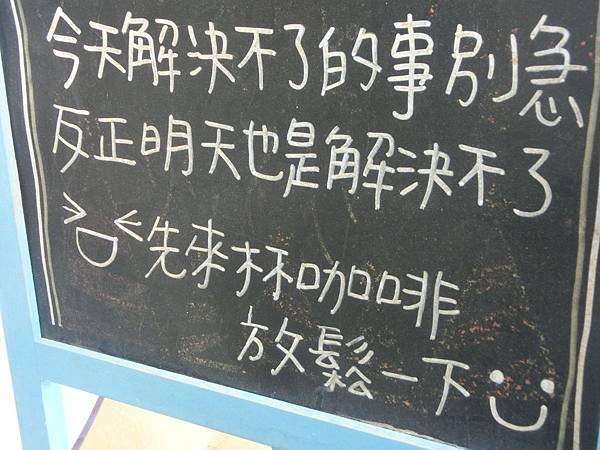 今天解決不了的事別急
反正明天也是解決不了
>D<先來杯咖啡
放鬆一下